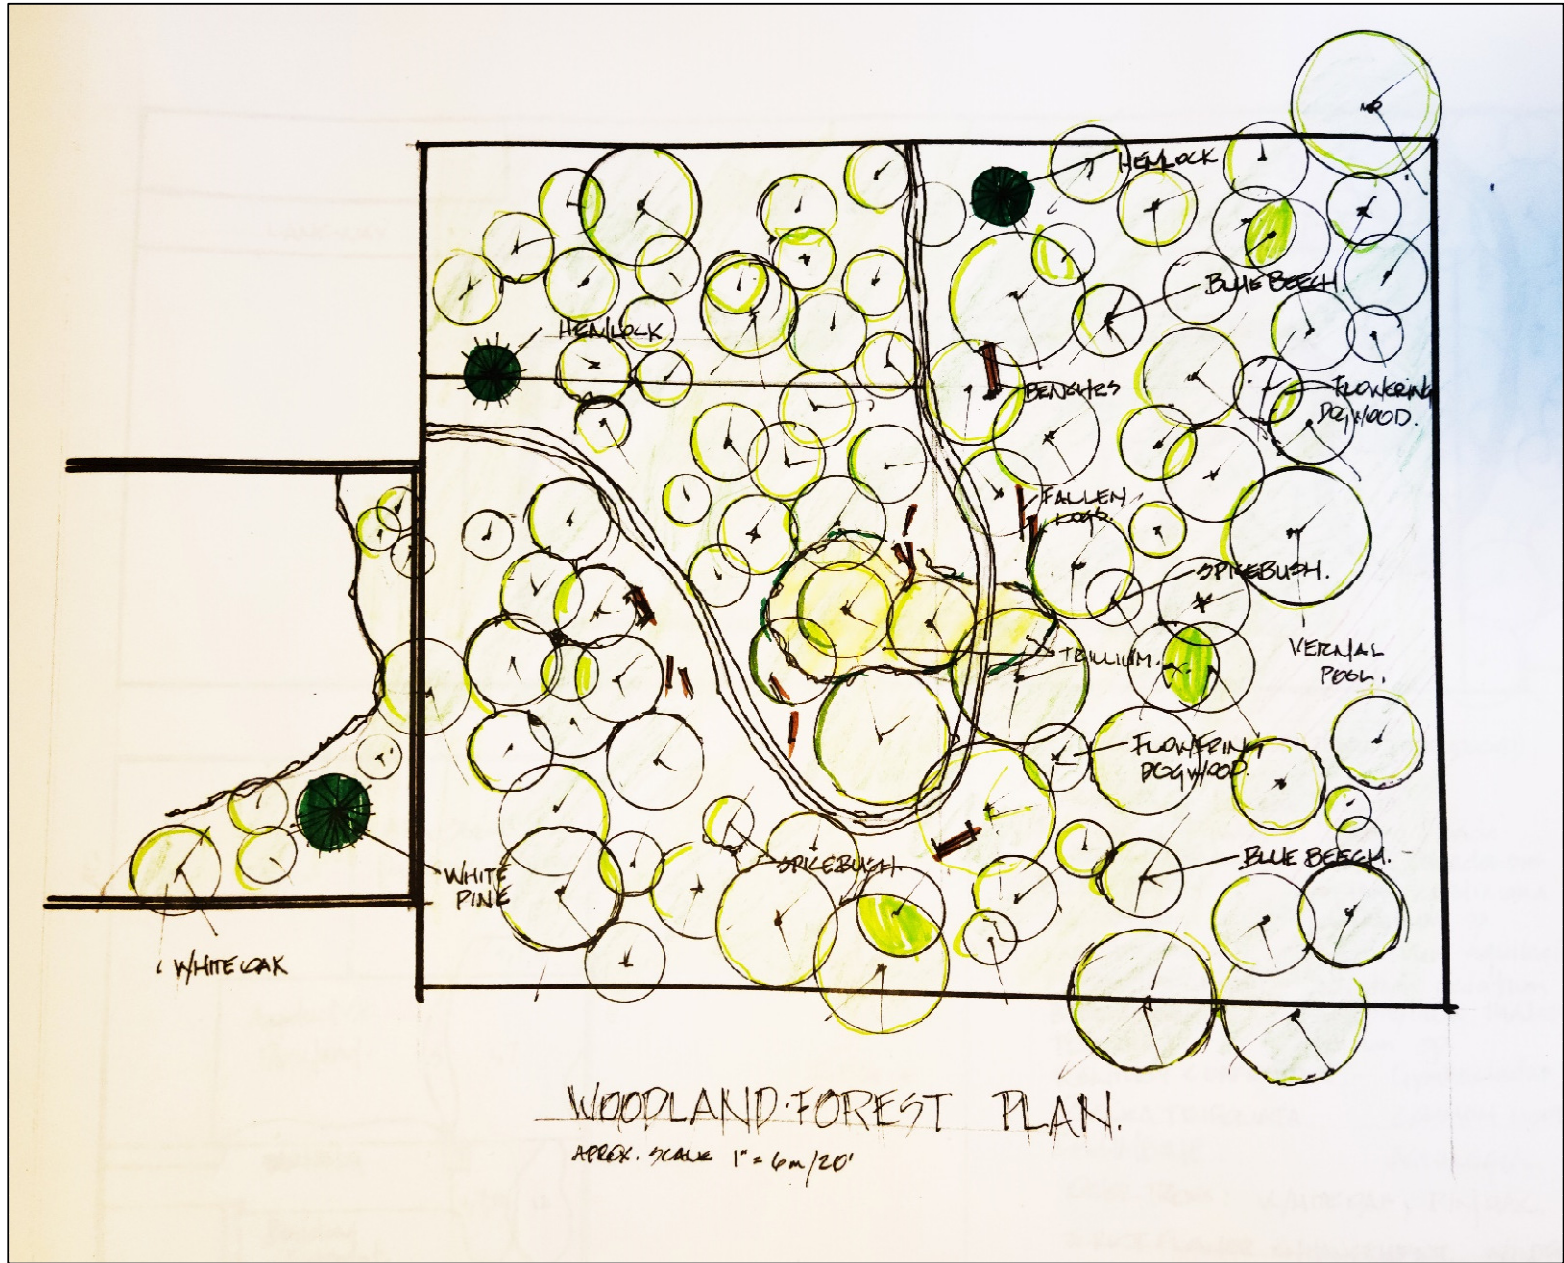 HEMLOCK
BLUE BEECH.
HEMLOCK
BENCHES
FLOWERING
DOGWOOD.
FALLEN
LOGS.
SPICEBUSH.
VERNAL
POOL.
TRILLIUM.
FLOWERING
DOGWOOD.
SPICEBUSH.
BLUE BEECH.
WHITE
PINE
WHITE OAK
WOODLAND·FOREST PLAN.
APROX. SCALE 1" = 6m/20'